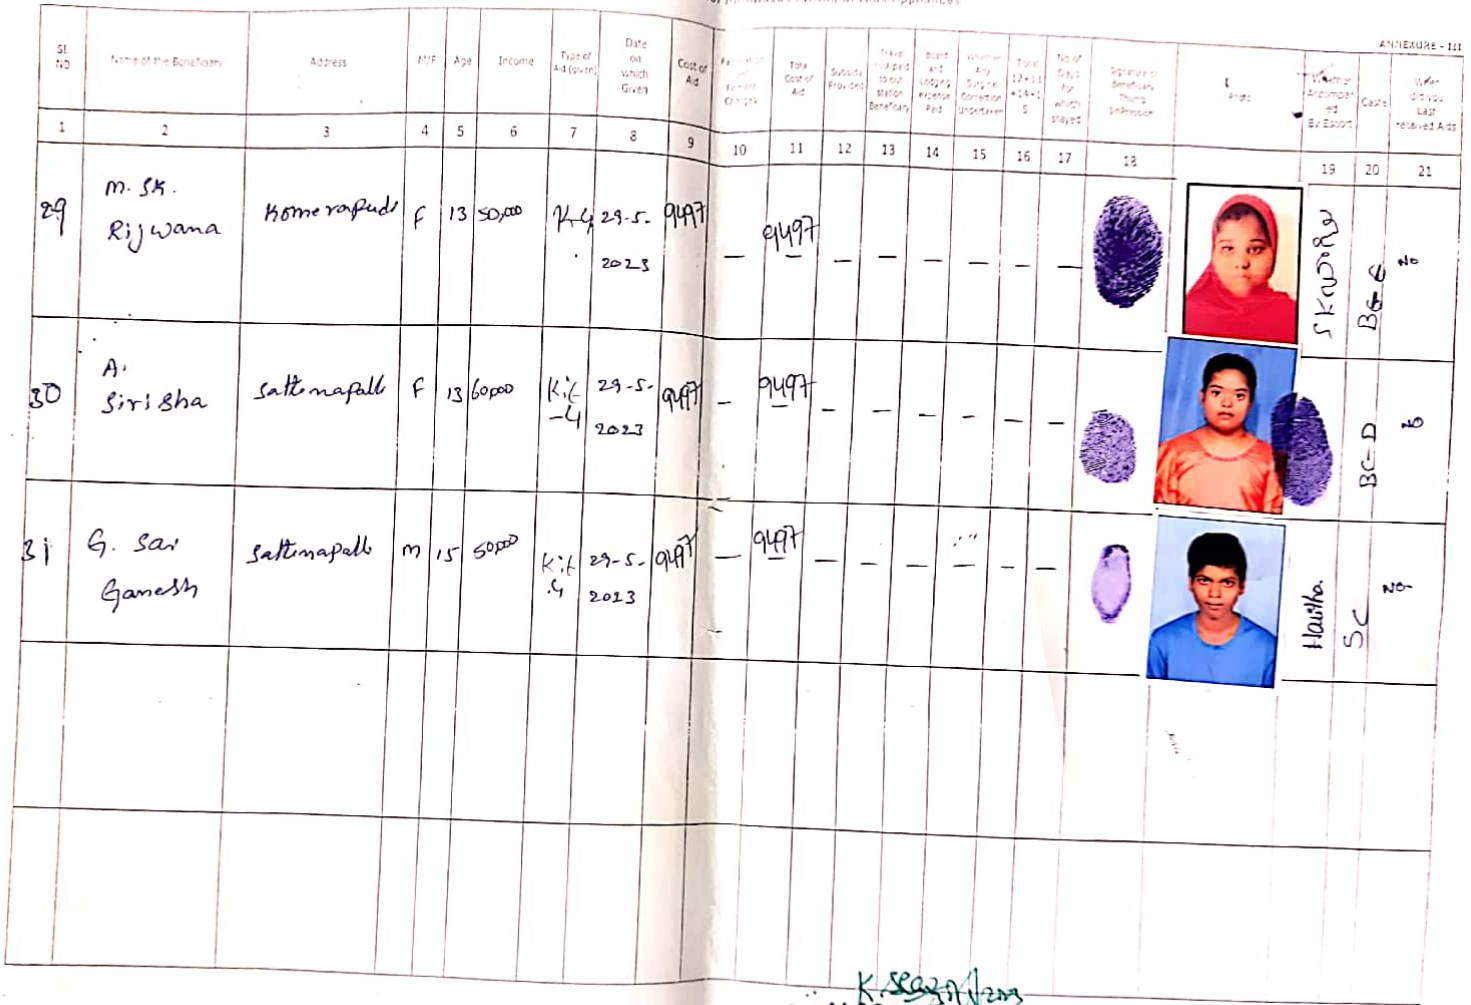 ANNEXURE - III
Sl. NO Name of the Beneficiary Address M/F Age Income Type of Aid (given) Date on which Given Cost of Aid Total Cost of Aid Subsidy Provided Travel cost paid to out station Beneficiary Board and Lodging expense Paid Whether Any Surgical Correction Undertaken Total 12+13+14+15 No of days for which stayed Signature of Beneficiary Thumb Impression Photo Whether Accompanied By Escort Caste When did you Last received Aids
1 2 3 4 5 6 7 8 9 10 11 12 13 14 15 16 17 18 19 20 21
29 M. SK. Rijwana F 13 50,000 K-4 29-5-2023 9497 — 9497 — — — — — — No
30 A. Sirisha Sattenapalli F 13 60,000 Kit-4 29-5-2023 9497 — 9497 — — — — — — BC-D No
31 G. Sai Ganesh Sattenapalli M 15 50,000 Kit-4 29-5-2023 9497 — 9497 — — — — — — Haritha SC No-